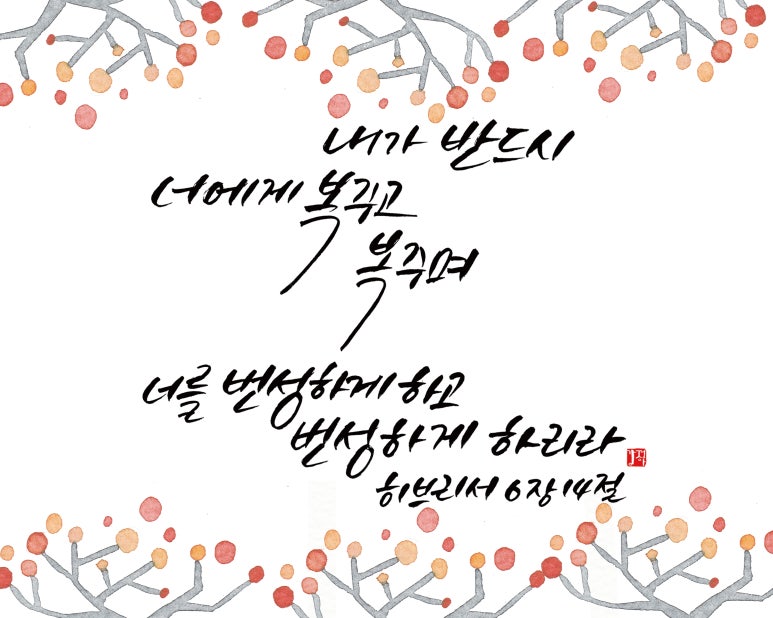 내가 반드시
너에게 복주고
복주며
너를 번성하게 하고
번성하게 하리라
히브리서 6장 14절